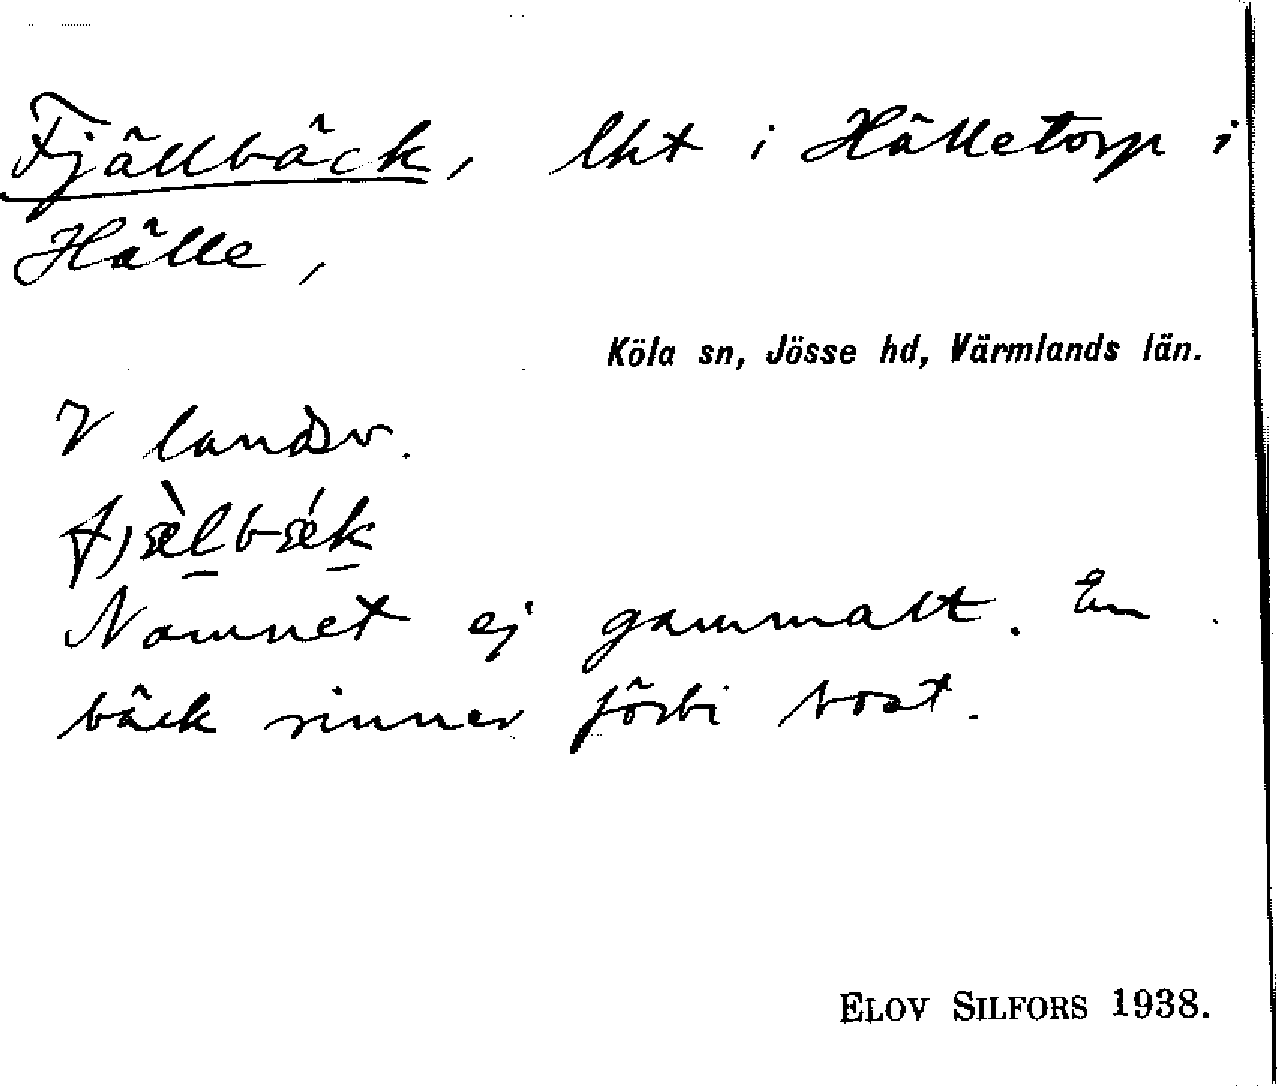 Fjällbäck, lht i Hälletorp i
Hälle,
Köla sn, Jösse hd, Värmlands län.
V landsv.
fjæ̀lbǽk
Namnet ej gammalt. En
bäck rinner förbi bost.
ELOV SILFORS 1938.